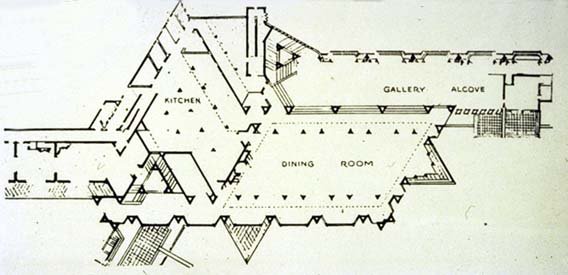 KITCHEN
GALLERY ALCOVE
DINING ROOM